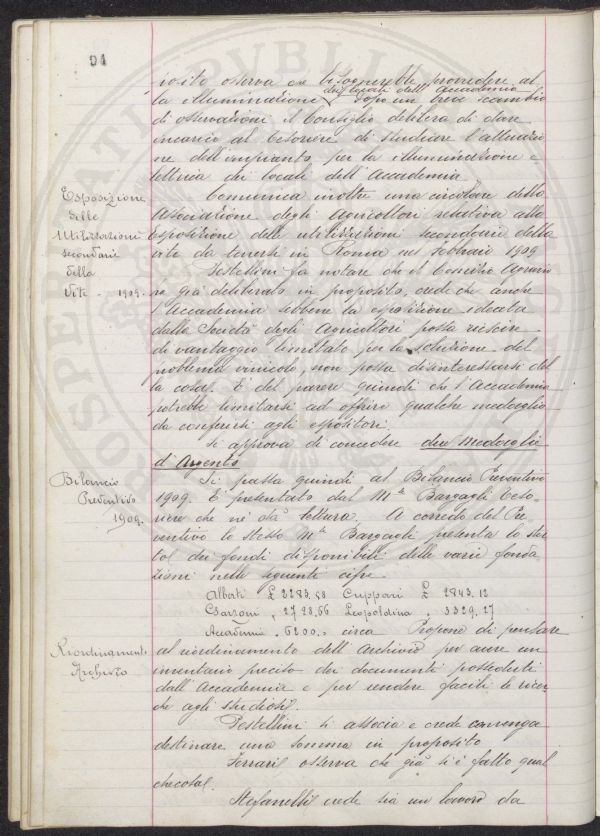 94
posito osserva che bisognerebbe provvedere al
la illuminazione dei locali dell'Accademia. Dopo un breve scambio
di osservazioni il Consiglio delibera di dare
incarico al Tesoriere di studiare l'attuazio
ne dell'impianto per la illuminazione e
lettrica dei locali dell'Accademia
Esposizione
delle
Utilizzazioni
secondarie
della
Vite - 1909.
Comunica inoltre una circolare della
Associazione degli Agricoltori relativa alla
esposizione delle utilizzazioni secondarie della
vite da tenersi in Roma nel Febbraio 1909
Pestellini fa notare che il Comizio Agrario
ne già deliberato in proposito, crede che anche
l'Accademia sebbene la esposizione ideata
dalla Società degli Agricoltori possa riescire
di vantaggio limitato per la soluzione del
problema vinicolo, non possa disinteressarsi del
la cosa. È del parere quindi che l'Accademia
potrebbe limitarsi ad offrire qualche medaglia
da conferirsi agli espositori.
Si approva di concedere due Medaglie
d'Argento
Bilancio
Preventivo
1909.
Si passa quindi al Bilancio Preventivo
1909. È presentato dal M.se Bargagli Teso-
riere che ne dà lettura. A corredo del Pre
ventivo lo stesso M.se Bargagli presenta lo sta
to dei fondi disponibili delle varie fonda
zioni nelle seguenti cifre.
Alberti £ 2283.58 Cuppari £ 2843.12
Garzoni " 2728.66 Leopoldina " 3329.27
Accademia " 6200.= circa Propone di pensare
Riordinamento
Archivio
al riordinamento dell'archivio per avere un
inventario preciso dei documenti posseduti
dall'Accademia e per rendere facili le ricer
che agli studiosi.
Pestellini si associa e crede convenga
destinare una somma in proposito
Ferrari osserva che già si è fatto qual
checosa.
Stefanelli crede sia un lavoro da